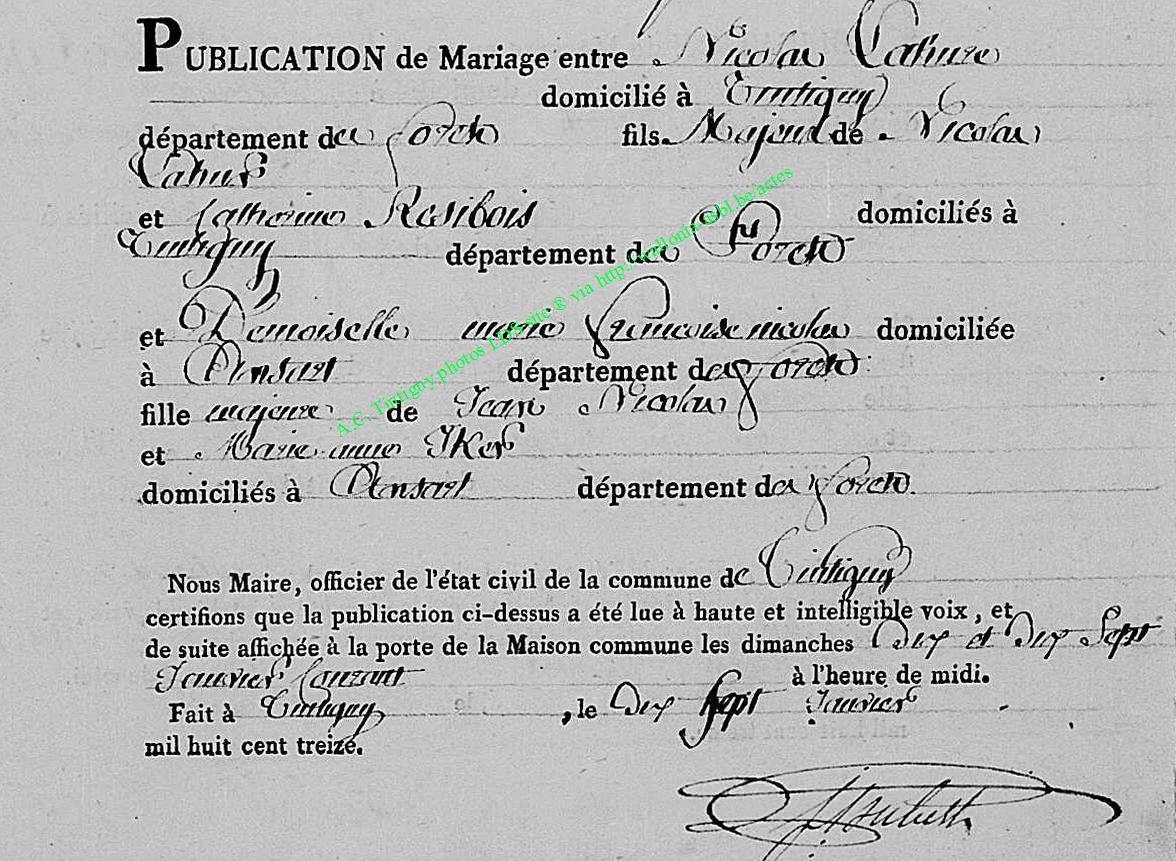 PUBLICATION de Mariage entre Nicolas Cahure
domicilié à Tintigny
département des forets fils Majeur de Nicolas
Cahure
et Catherine Rosibois domiciliés à
Tintigny département des Forets
et Demoiselle marie francoise nicolas domiciliée
à Ansart département des forets
fille majeure de Jean Nicolas
et Marie anne
domiciliés à Ansart département des forets.
Nous Maire, officier de l'état civil de la commune de Tintigny
certifions que la publication ci-dessus a été lue à haute et intelligible voix, et
de suite affichée à la porte de la Maison commune les dimanches Dix et Dix Sept
Janvier Courant à l'heure de midi.
Fait à Tintigny, le Dix Sept Janvier
mil huit cent treize.
A.C. Tintigny photos LDS site ® via http://wallonia.asbl.be/actes